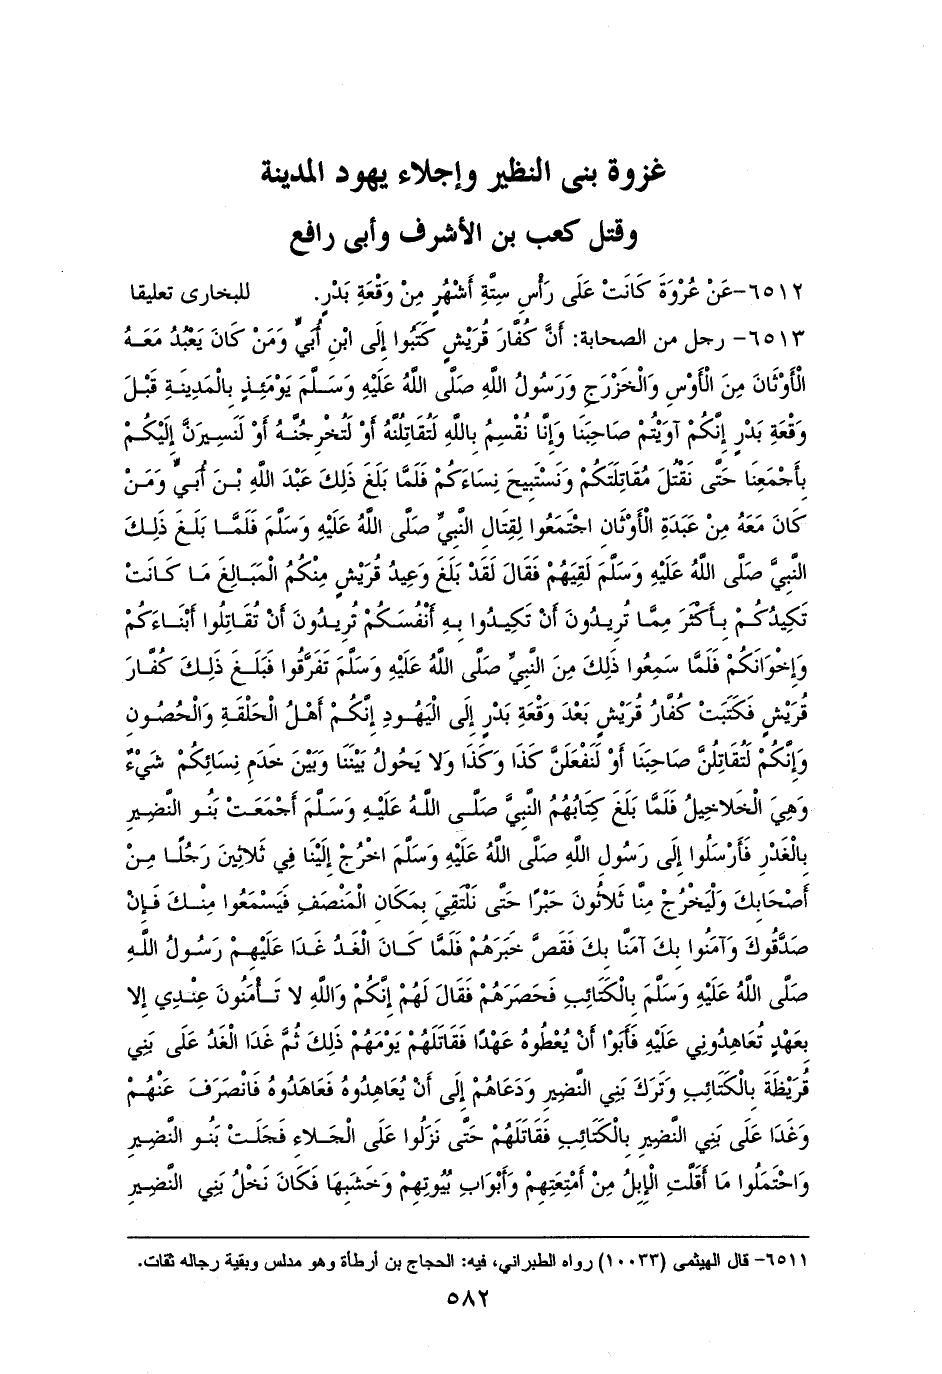 غزوة بنى النظير وإجلاء يهود المدينة
وقتل كعب بن الأشرف وأبى رافع
٦٥١٢-عَنْ عُرْوَةَ كَانَتْ عَلَى رَأْسِ سِتَّةِ أَشْهُرٍ مِنْ وَقْعَةِ بَدْرٍ. للبخارى تعليقا
٦٥١٣- رجل من الصحابة: أَنَّ كُفَّارَ قُرَيْشٍ كَتَبُوا إِلَى ابْنِ أُبَيٍّ وَمَنْ كَانَ يَعْبُدُ مَعَهُ
الْأَوْثَانَ مِنَ الْأَوْسِ وَالْخَزْرَجِ وَرَسُولُ اللهِ صَلَّى اللهُ عَلَيْهِ وَسَلَّمَ يَوْمَئِذٍ بِالْمَدِينَةِ قَبْلَ
وَقْعَةِ بَدْرٍ إِنَّكُمْ آوَيْتُمْ صَاحِبَنَا وَإِنَّا نُقْسِمُ بِاللهِ لَتُقَاتِلُنَّهُ أَوْ لَتُخْرِجُنَّهُ أَوْ لَنَسِيرَنَّ إِلَيْكُمْ
بِأَجْمَعِنَا حَتَّى نَقْتُلَ مُقَاتِلَتَكُمْ وَنَسْتَبِيحَ نِسَاءَكُمْ فَلَمَّا بَلَغَ ذَلِكَ عَبْدَ اللهِ بْنَ أُبَيٍّ وَمَنْ
كَانَ مَعَهُ مِنْ عَبَدَةِ الْأَوْثَانِ اجْتَمَعُوا لِقِتَالِ النَّبِيِّ صَلَّى اللهُ عَلَيْهِ وَسَلَّمَ فَلَمَّا بَلَغَ ذَلِكَ
النَّبِيَّ صَلَّى اللهُ عَلَيْهِ وَسَلَّمَ لَقِيَهُمْ فَقَالَ لَقَدْ بَلَغَ وَعِيدُ قُرَيْشٍ مِنْكُمُ الْمَبَالِغَ مَا كَانَتْ
تَكِيدُكُمْ بِأَكْثَرَ مِمَّا تُرِيدُونَ أَنْ تَكِيدُوا بِهِ أَنْفُسَكُمْ تُرِيدُونَ أَنْ تُقَاتِلُوا أَبْنَاءَكُمْ
وَإِخْوَانَكُمْ فَلَمَّا سَمِعُوا ذَلِكَ مِنَ النَّبِيِّ صَلَّى اللهُ عَلَيْهِ وَسَلَّمَ تَفَرَّقُوا فَبَلَغَ ذَلِكَ كُفَّارَ
قُرَيْشٍ فَكَتَبَتْ كُفَّارُ قُرَيْشٍ بَعْدَ وَقْعَةِ بَدْرٍ إِلَى الْيَهُودِ إِنَّكُمْ أَهْلُ الْحَلْقَةِ وَالْحُصُونِ
وَإِنَّكُمْ لَتُقَاتِلُنَّ صَاحِبَنَا أَوْ لَنَفْعَلَنَّ كَذَا وَكَذَا وَلا يَحُولُ بَيْنَنَا وَبَيْنَ خَدَمِ نِسَائِكُمْ شَيْءٌ
وَهِيَ الْخَلاخِيلُ فَلَمَّا بَلَغَ كِتَابُهُمُ النَّبِيَّ صَلَّى اللهُ عَلَيْهِ وَسَلَّمَ أَجْمَعَتْ بَنُو النَّضِيرِ
بِالْغَدْرِ فَأَرْسَلُوا إِلَى رَسُولِ اللهِ صَلَّى اللهُ عَلَيْهِ وَسَلَّمَ اخْرُجْ إِلَيْنَا فِي ثَلاثِينَ رَجُلًا مِنْ
أَصْحَابِكَ وَلْيَخْرُجْ مِنَّا ثَلاثُونَ حَبْرًا حَتَّى نَلْتَقِيَ بِمَكَانِ الْمَنْصَفِ فَيَسْمَعُوا مِنْكَ فَإِنْ
صَدَّقُوكَ وَآمَنُوا بِكَ آمَنَّا بِكَ فَقَصَّ خَبَرَهُمْ فَلَمَّا كَانَ الْغَدُ غَدَا عَلَيْهِمْ رَسُولُ اللهِ
صَلَّى اللهُ عَلَيْهِ وَسَلَّمَ بِالْكَتَائِبِ فَحَصَرَهُمْ فَقَالَ لَهُمْ إِنَّكُمْ وَاللهِ لا تَأْمَنُونَ عِنْدِي إِلا
بِعَهْدٍ تُعَاهِدُونِي عَلَيْهِ فَأَبَوْا أَنْ يُعْطُوهُ عَهْدًا فَقَاتَلَهُمْ يَوْمَهُمْ ذَلِكَ ثُمَّ غَدَا الْغَدُ عَلَى بَنِي
قُرَيْظَةَ بِالْكَتَائِبِ وَتَرَكَ بَنِي النَّضِيرِ وَدَعَاهُمْ إِلَى أَنْ يُعَاهِدُوهُ فَعَاهَدُوهُ فَانْصَرَفَ عَنْهُمْ
وَغَدَا عَلَى بَنِي النَّضِيرِ بِالْكَتَائِبِ فَقَاتَلَهُمْ حَتَّى نَزَلُوا عَلَى الْجَلاءِ فَجَلَتْ بَنُو النَّضِيرِ
وَاحْتَمَلُوا مَا أَقَلَّتِ الْإِبِلُ مِنْ أَمْتِعَتِهِمْ وَأَبْوَابِ بُيُوتِهِمْ وَخَشَبِهَا فَكَانَ نَخْلُ بَنِي النَّضِيرِ
٦٥١١- قال الهيثمى (١٠٠٣٣) رواه الطبراني، فيه: الحجاج بن أرطأة وهو مدلس وبقية رجاله ثقات.
٥٨٢